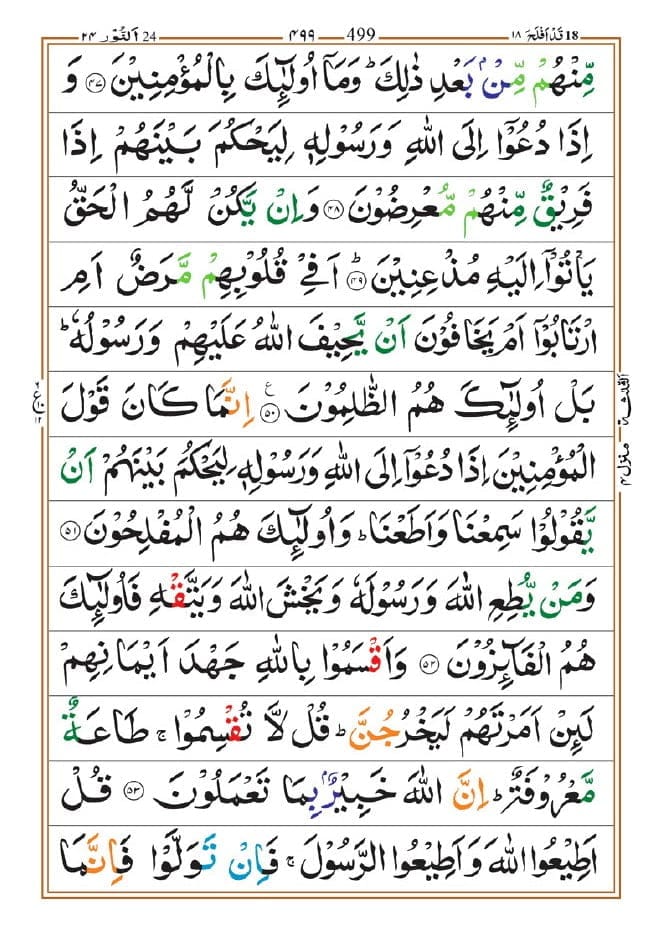 18 قَدْ اَفْلَحَ ١٨
499 ٤٩٩
24 اَلنُّوْر ٢٤
مِّنْهُمْ مِّنْۢ بَعْدِ ذٰلِكَ ؕ وَمَاۤ اُولٰٓئِكَ بِالْمُؤْمِنِيْنَ ﴿۴۷﴾ وَ
اِذَا دُعُوْۤا اِلَى اللّٰهِ وَرَسُوْلِهٖ لِيَحْكُمَ بَيْنَهُمْ اِذَا
فَرِيْقٌ مِّنْهُمْ مُّعْرِضُوْنَ ﴿۴۸﴾ وَاِنْ يَّكُنْ لَّهُمُ الْحَقُّ
يَاْتُوْۤا اِلَيْهِ مُذْعِنِيْنَ ﴿۴۹﴾ؕ اَفِيْ قُلُوْبِهِمْ مَّرَضٌ اَمِ
ارْتَابُوْۤا اَمْ يَخَافُوْنَ اَنْ يَّحِيْفَ اللّٰهُ عَلَيْهِمْ وَرَسُوْلُهٗ ؕ
بَلْ اُولٰٓئِكَ هُمُ الظّٰلِمُوْنَ ﴿۵۰﴾ع اِنَّمَا كَانَ قَوْلَ
الْمُؤْمِنِيْنَ اِذَا دُعُوْۤا اِلَى اللّٰهِ وَرَسُوْلِهٖ لِيَحْكُمَ بَيْنَهُمْ اَنْ
يَّقُوْلُوْا سَمِعْنَا وَاَطَعْنَا ؕ وَاُولٰٓئِكَ هُمُ الْمُفْلِحُوْنَ ﴿۵۱﴾
وَمَنْ يُّطِعِ اللّٰهَ وَرَسُوْلَهٗ وَيَخْشَ اللّٰهَ وَيَتَّقْهِ فَاُولٰٓئِكَ
هُمُ الْفَآئِزُوْنَ ﴿۵۲﴾ وَاَقْسَمُوْا بِاللّٰهِ جَهْدَ اَيْمَانِهِمْ
لَئِنْ اَمَرْتَهُمْ لَيَخْرُجُنَّ ؕ قُلْ لَّا تُقْسِمُوْا ۚ طَاعَةٌ
مَّعْرُوْفَةٌ ؕ اِنَّ اللّٰهَ خَبِيْرٌۢ بِمَا تَعْمَلُوْنَ ﴿۵۳﴾ قُلْ
اَطِيْعُوا اللّٰهَ وَاَطِيْعُوا الرَّسُوْلَ ۚ فَاِنْ تَوَلَّوْا فَاِنَّمَا
منزل ٤